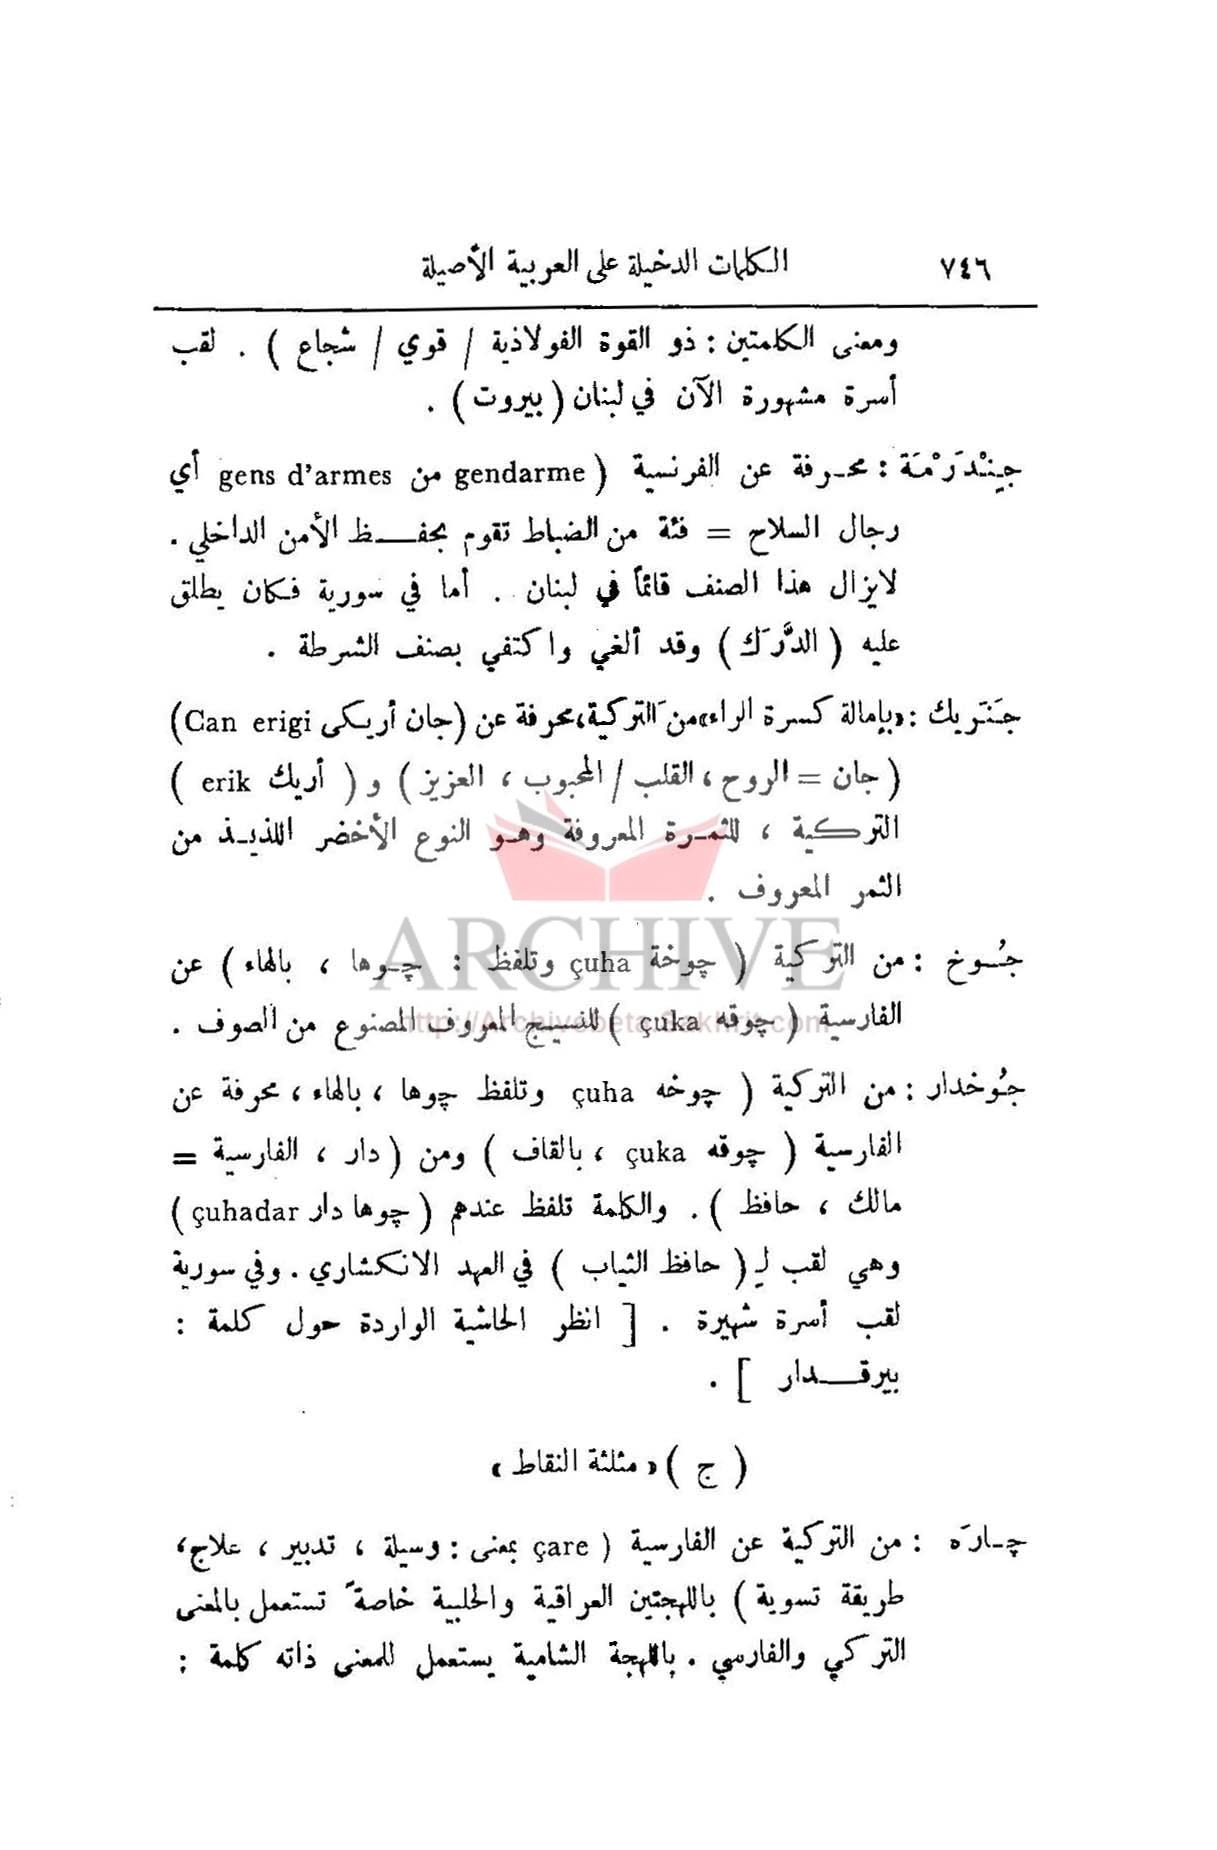 ٧٤٦ الكلمات الدخيلة على العربية الأصيلة
ومعنى الكلمتين : ذو القوة الفولاذية / قوي / شجاع ) . لقب
أسرة مشهورة الآن في لبنان ( بيروت ) .
جِينْدَرْمَة : محـرفة عن الفرنسية ( gendarme من gens d'armes أي
رجال السلاح = فئة من الضباط تقوم بحفـــظ الأمن الداخلي .
لايزال هذا الصنف قائماً في لبنان . أما في سورية فـكان يطلق
عليه ( الدَّرَك ) وقد ألغي واكتفي بصنف الشرطة .
جَنَريك : «بإمالة كسرة الراء» من التركية ، محرفة عن ( جان أريكى Can erigi )
( جان = الروح ، القلب / المحبوب ، العزيز ) و ( أريك erik )
التركـية ، للثمـرة المعروفة وهـو النوع الأخضر اللذيـذ من
الثمر المعروف .
ARCHIVE
جُـوخ : من التركية ( چوخة çuha وتلفظ : چـوها ، بالهاء ) عن
الفارسية ( چوقه çuka ) للنسيـج المعروف المصنوع من الصوف .
http://Archivebeta.Sakhrit.com
جُوخدار : من التركية ( چوخه çuha وتلفظ چوها ، بالهاء ، محرفة عن
الفارسية ( چوقه çuka ، بالقاف ) ومن ( دار ، الفارسية =
مالك ، حافظ ) . والكلمة تلفظ عندهم ( چوها دار çuhadar )
وهي لقب لـ ( حافظ الثياب ) في العهد الانكشاري . وفي سورية
لقب أسرة شهيرة . [ انظر الحاشية الواردة حول كلمة :
بيرقـــدار ] .
( چ ) « مثلثة النقاط »
چـارَه : من التركية عن الفارسية ( çare بمعنى : وسيلة ، تدبير ، علاج ،
طريقة تسوية ) باللهجتين العراقية والحلبية خاصةً تستعمل بالمعنى
التركي والفارسي . باللهجة الشامية يستعمل للمعنى ذاته كلمة :